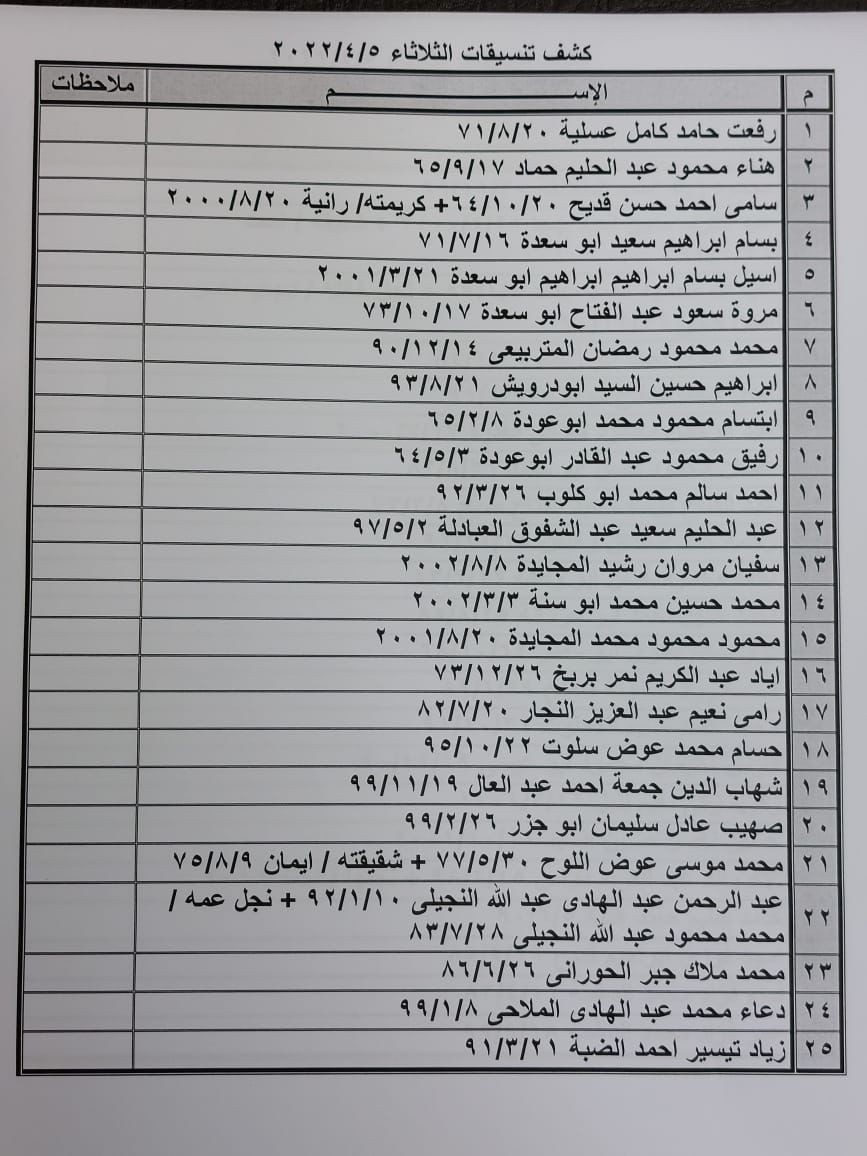 كشف تنسيقات الثلاثاء ٢٠٢٢/٤/٥
م الإســــــــم ملاحظات
١ رفعت حامد كامل عسلية ٧١/٨/٢٠
٢ هناء محمود عبد الحليم حماد ٦٥/٩/١٧
٣ سامى احمد حسن قديح ٦٤/١٠/٢٠+ كريمته/ رانية ٢٠٠٠/٨/٢٠
٤ بسام ابراهيم سعيد ابو سعدة ٧١/٧/١٦
٥ اسيل بسام ابراهيم ابراهيم ابو سعدة ٢٠٠١/٣/٢١
٦ مروة سعود عبد الفتاح ابو سعدة ٧٣/١٠/١٧
٧ محمد محمود رمضان المتربيعى ٩٠/١٢/١٤
٨ ابراهيم حسين السيد ابودرويش ٩٣/٨/٢١
٩ ابتسام محمود محمد ابوعودة ٦٥/٢/٨
١٠ رفيق محمود عبد القادر ابوعودة ٦٤/٥/٣
١١ احمد سالم محمد ابو كلوب ٩٢/٣/٢٦
١٢ عبد الحليم سعيد عبد الشفوق العبادلة ٩٧/٥/٢
١٣ سفيان مروان رشيد المجايدة ٢٠٠٢/٨/٨
١٤ محمد حسين محمد ابو سنة ٢٠٠٢/٣/٣
١٥ محمود محمود محمد المجايدة ٢٠٠١/٨/٢٠
١٦ اياد عبد الكريم نمر بربخ ٧٣/١٢/٢٦
١٧ رامى نعيم عبد العزيز النجار ٨٢/٧/٢٠
١٨ حسام محمد عوض سلوت ٩٥/١٠/٢٢
١٩ شهاب الدين جمعة احمد عبد العال ٩٩/١١/١٩
٢٠ صهيب عادل سليمان ابو جزر ٩٩/٢/٢٦
٢١ محمد موسى عوض اللوح ٧٧/٥/٣٠ + شقيقته / ايمان ٧٥/٨/٩
٢٢ عبد الرحمن عبد الهادى عبد الله النجيلى ٩٢/١/١٠ + نجل عمه /
محمد محمود عبد الله النجيلى ٨٣/٧/٢٨
٢٣ محمد ملاك جبر الحورانى ٨٦/٦/٢٦
٢٤ دعاء محمد عبد الهادى الملاحى ٩٩/١/٨
٢٥ زياد تيسير احمد الضبة ٩١/٣/٢١